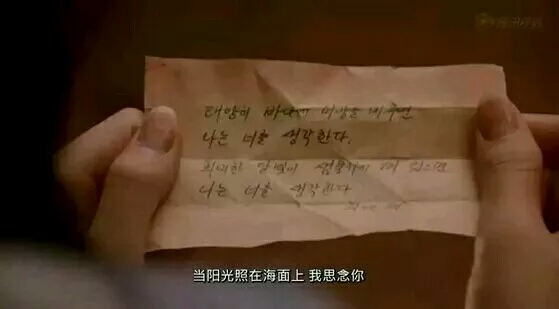 태양이 바다에 미광을 비추면
나는 너를 생각한다.
희미한 달빛이 샘물위에 떠 있으면
나는 너를 생각한다
当阳光照在海面上 我思念你